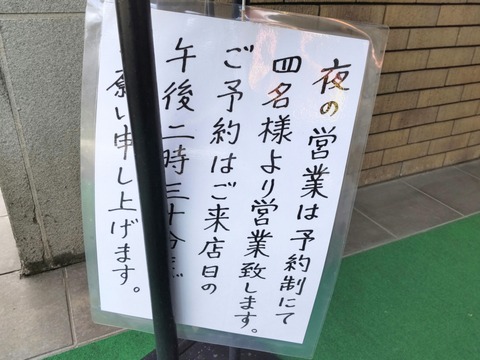 夜の営業は予約制にて
四名様より営業致します。
ご予約はご来店日の
午後二時三十分まで
願い申し上げます。